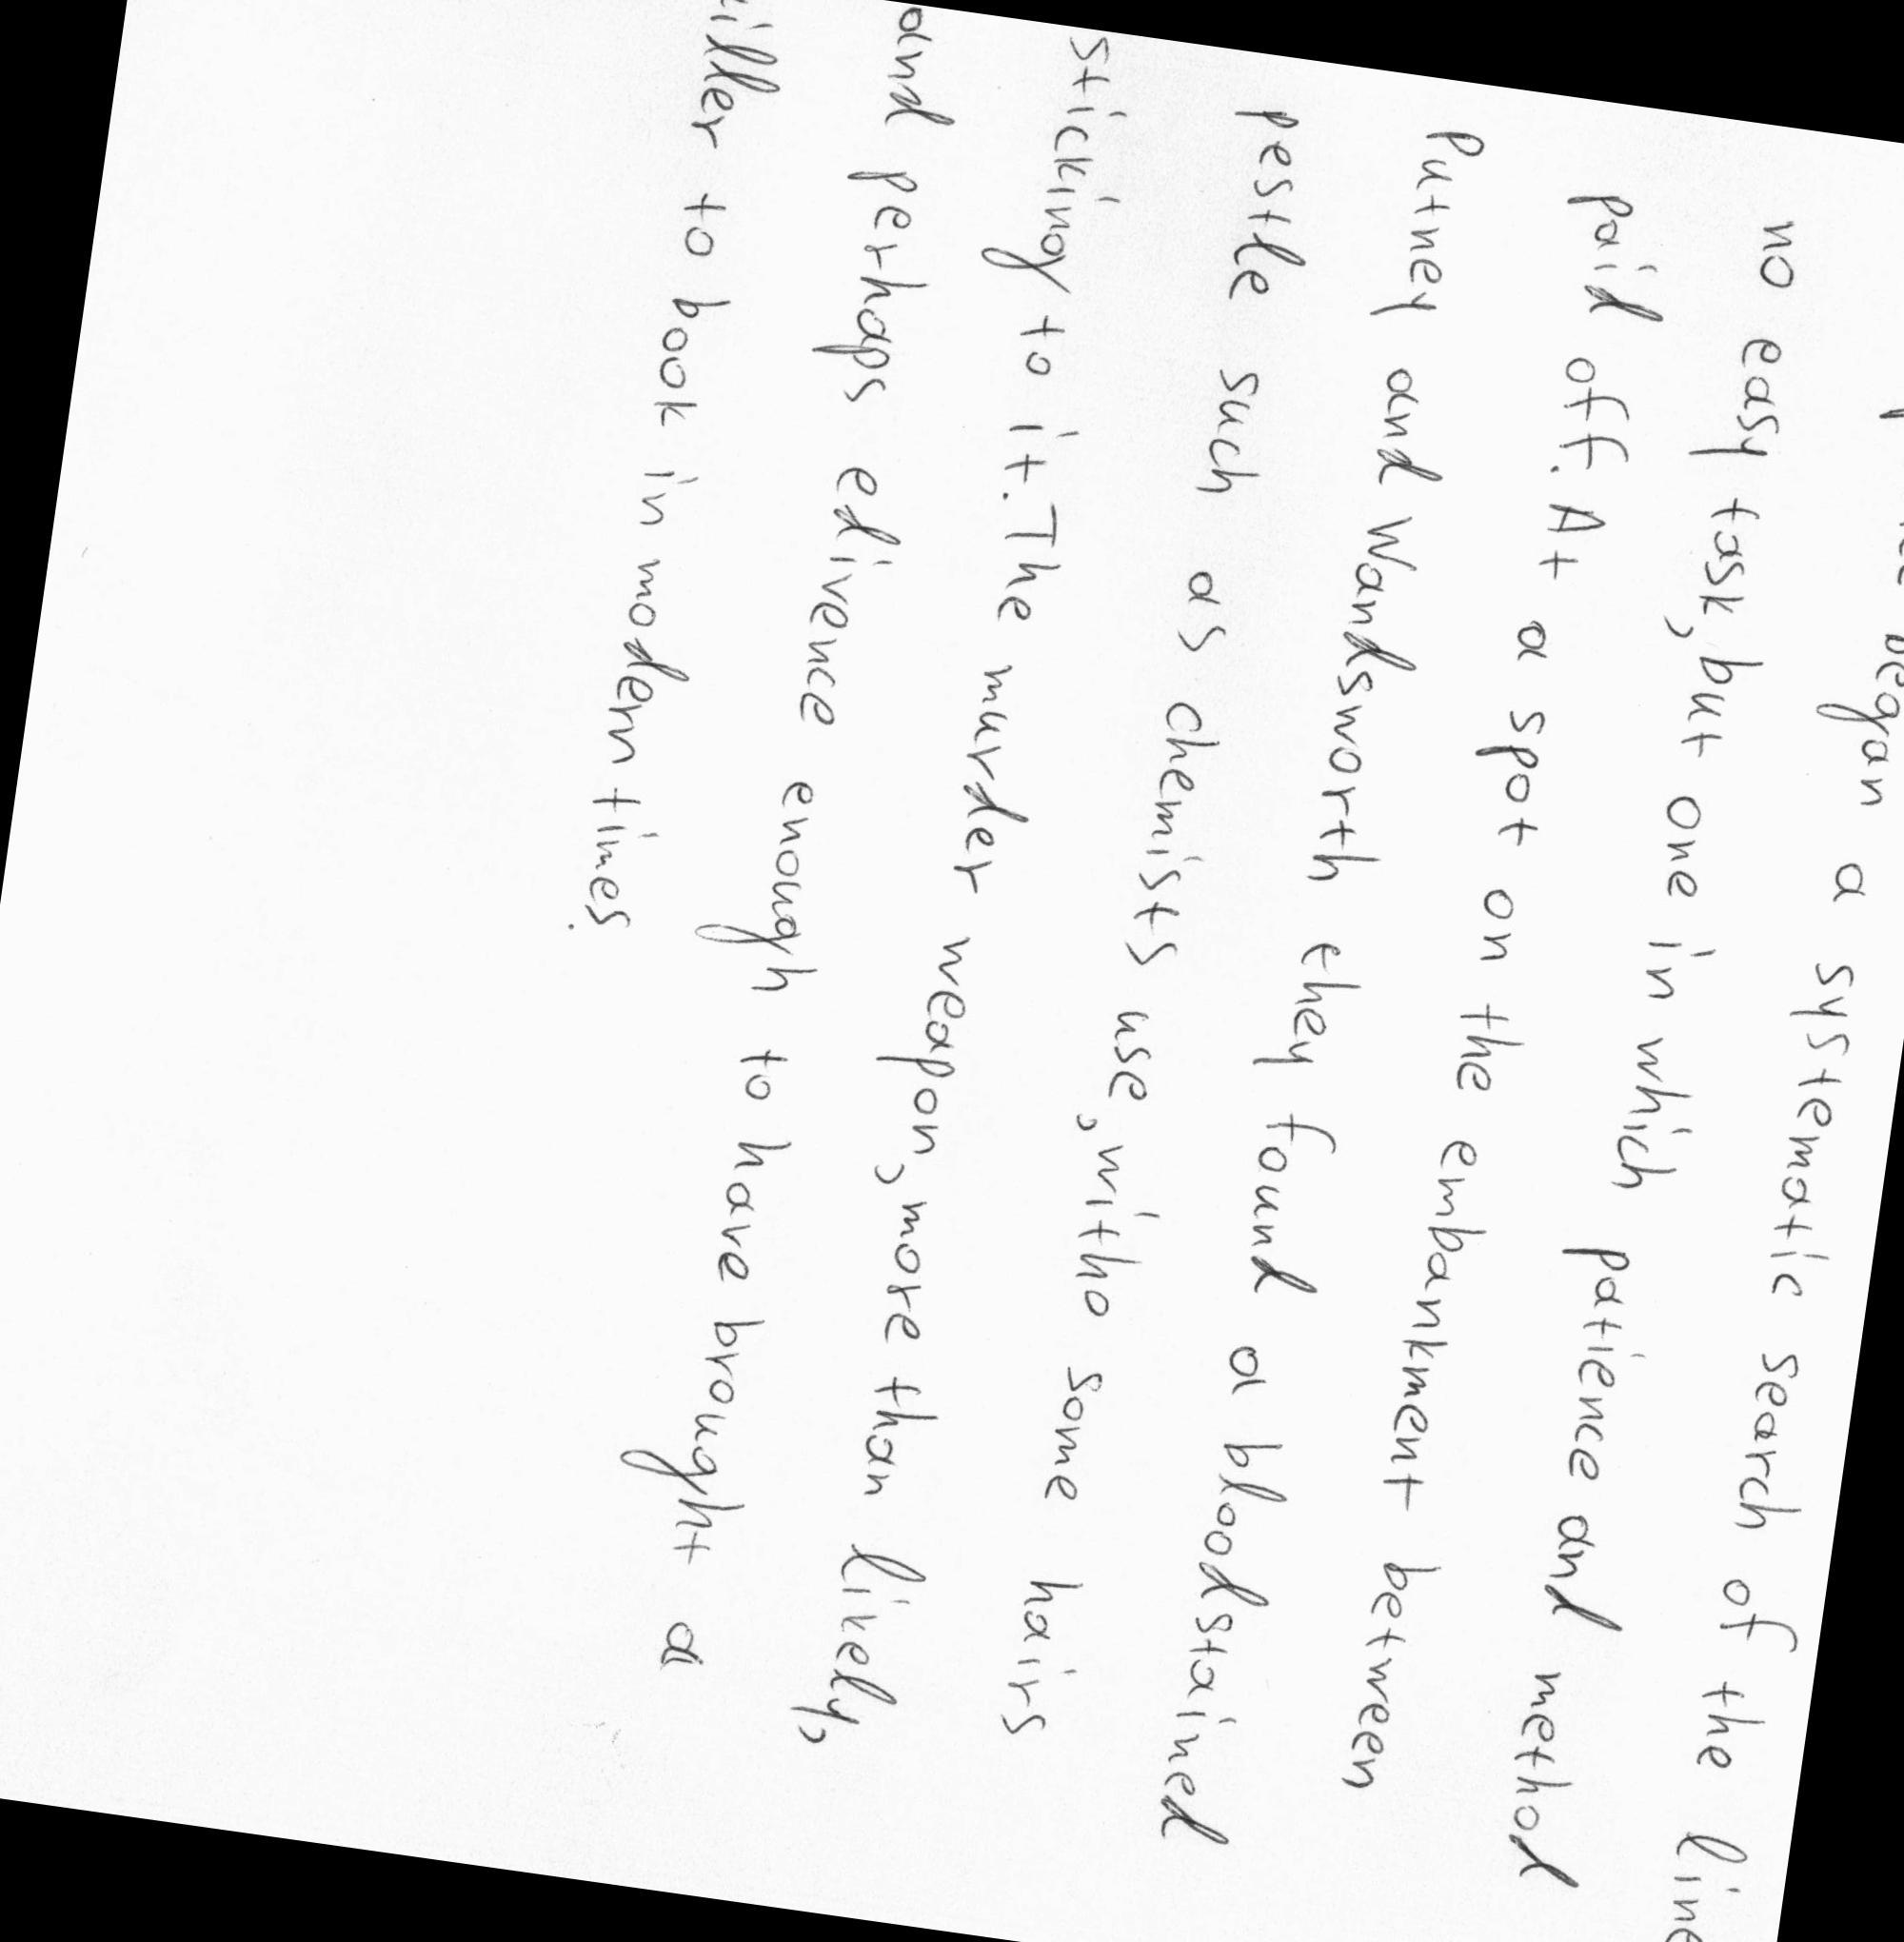 began a systematic search of the line
no easy task, but one in which patience and method
paid off. At a spot on the embankment between
Putney and Wandsworth they found a bloodstained
pestle such as chemists use, witho some hairs
sticking to it. The murder weapon, more than likely,
and perhaps edivence enough to have brought a
killer to book in modern times.